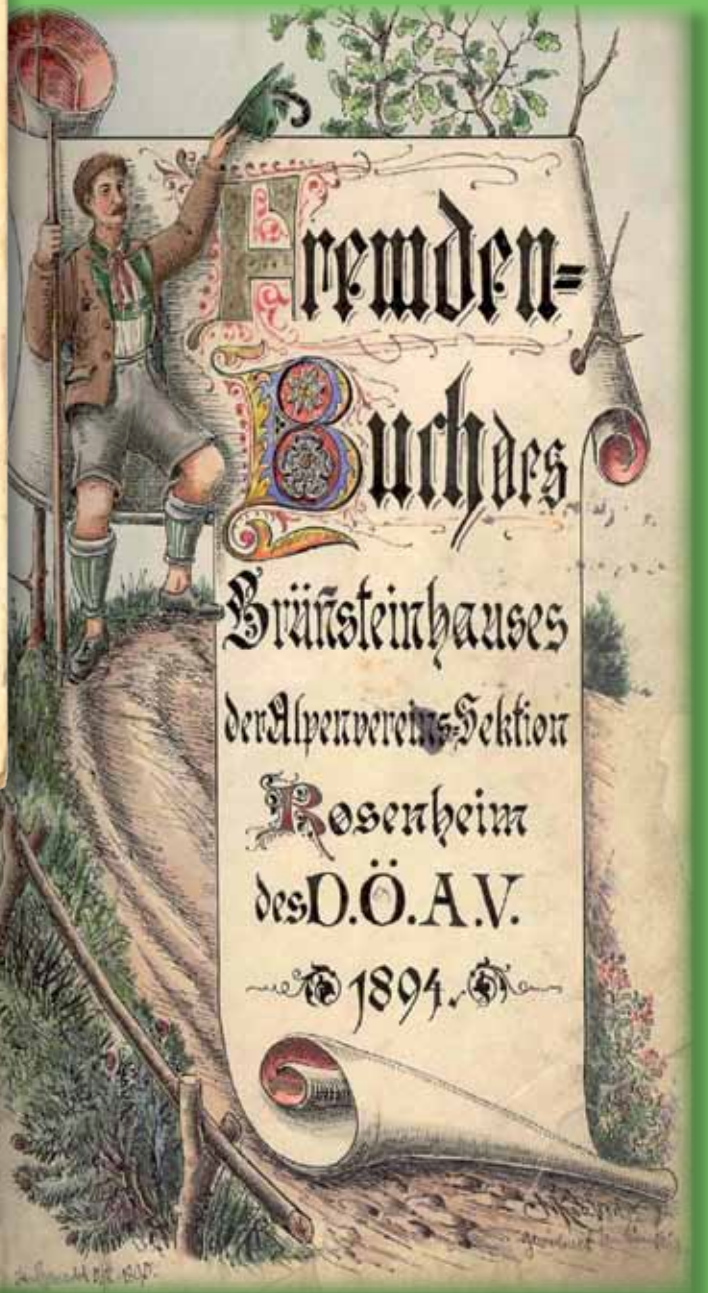 Fremden=
Buch des
Brün̄steinhauses
der Alpenvereins=Sektion
Rosenheim
des D.Ö.A.V.
1894.